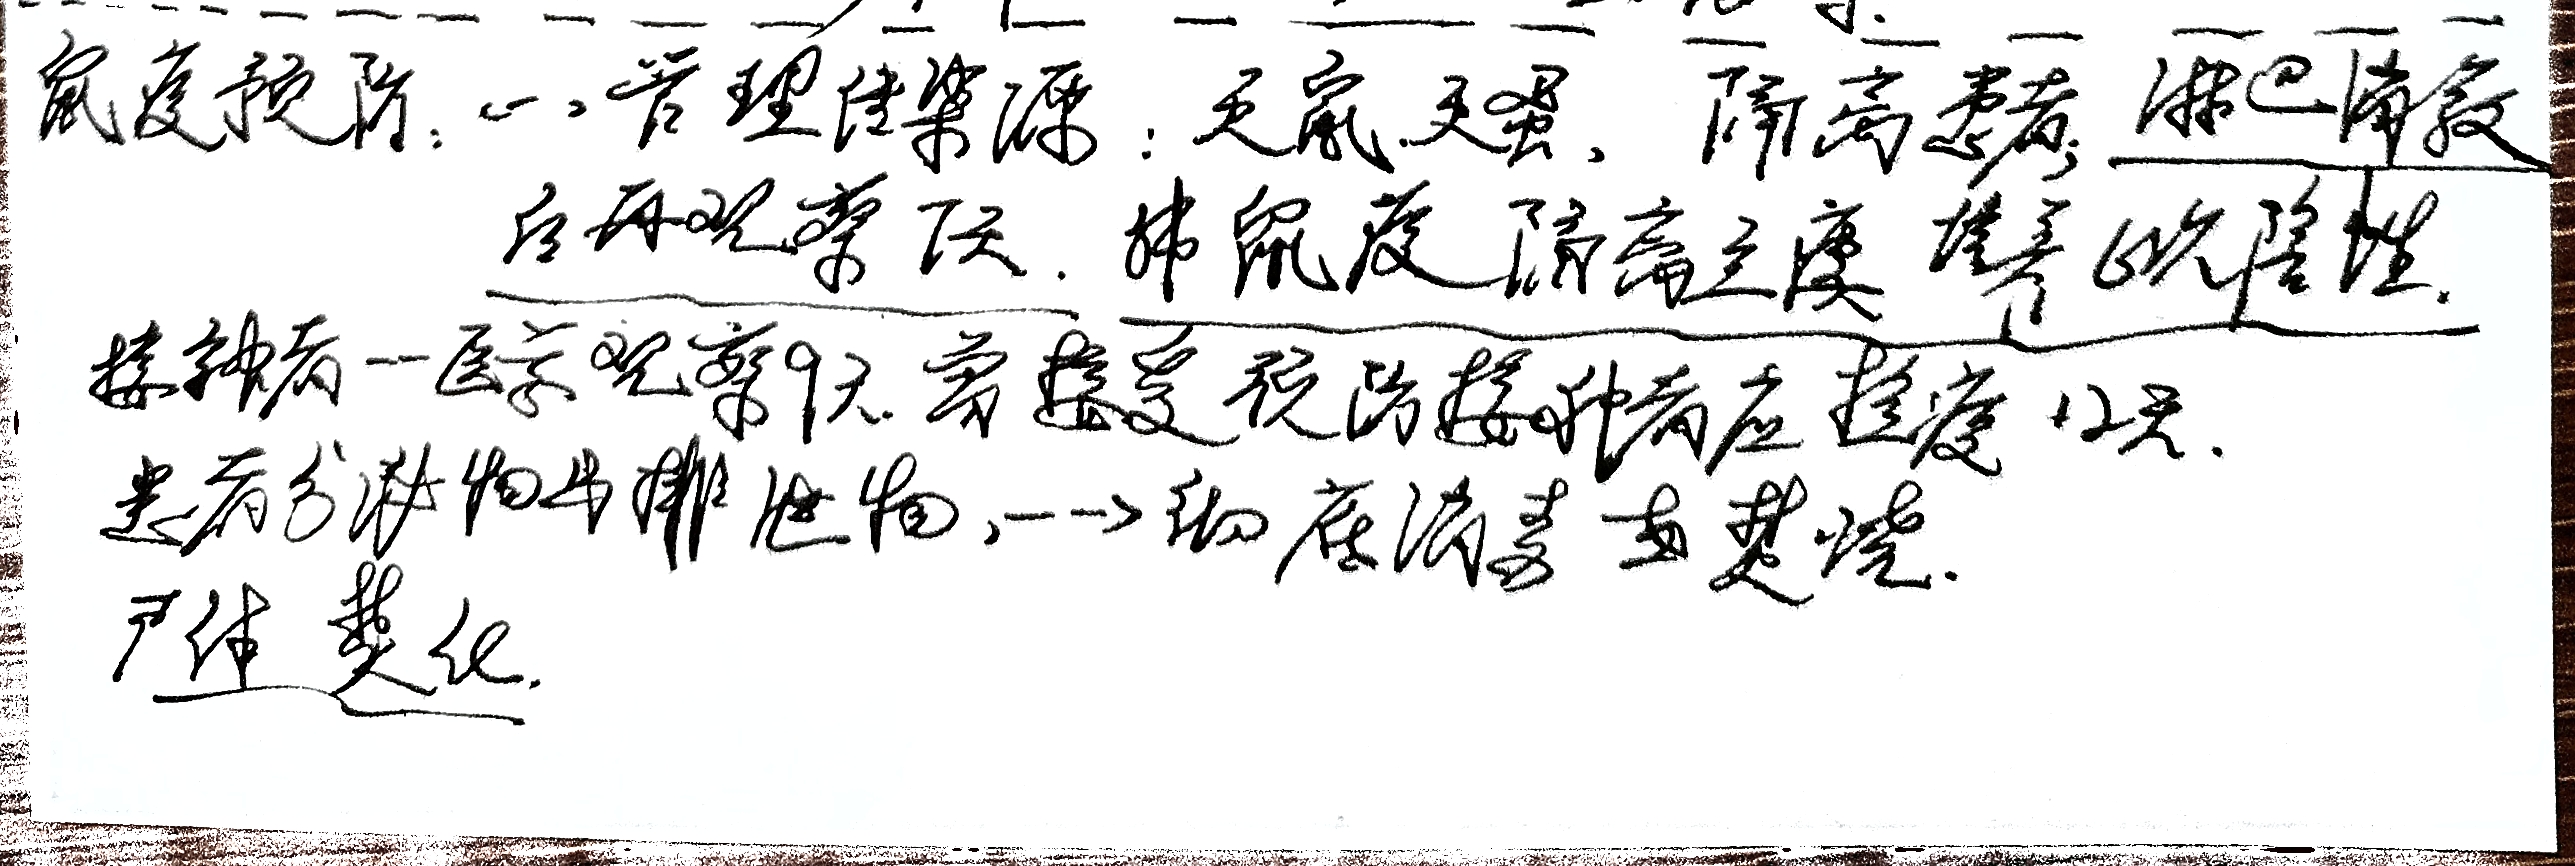 鼠疫预防：(一)管理传染源：灭鼠灭蚤，隔离患者，淋巴消散
后再观察7天．肺鼠疫隔离至痰培养6次阴性．
接触者--医学观察9天．曾接受预防接种者应检疫12天．
患者分泌物与排泄物，--→彻底消毒或焚烧．
尸体焚化．